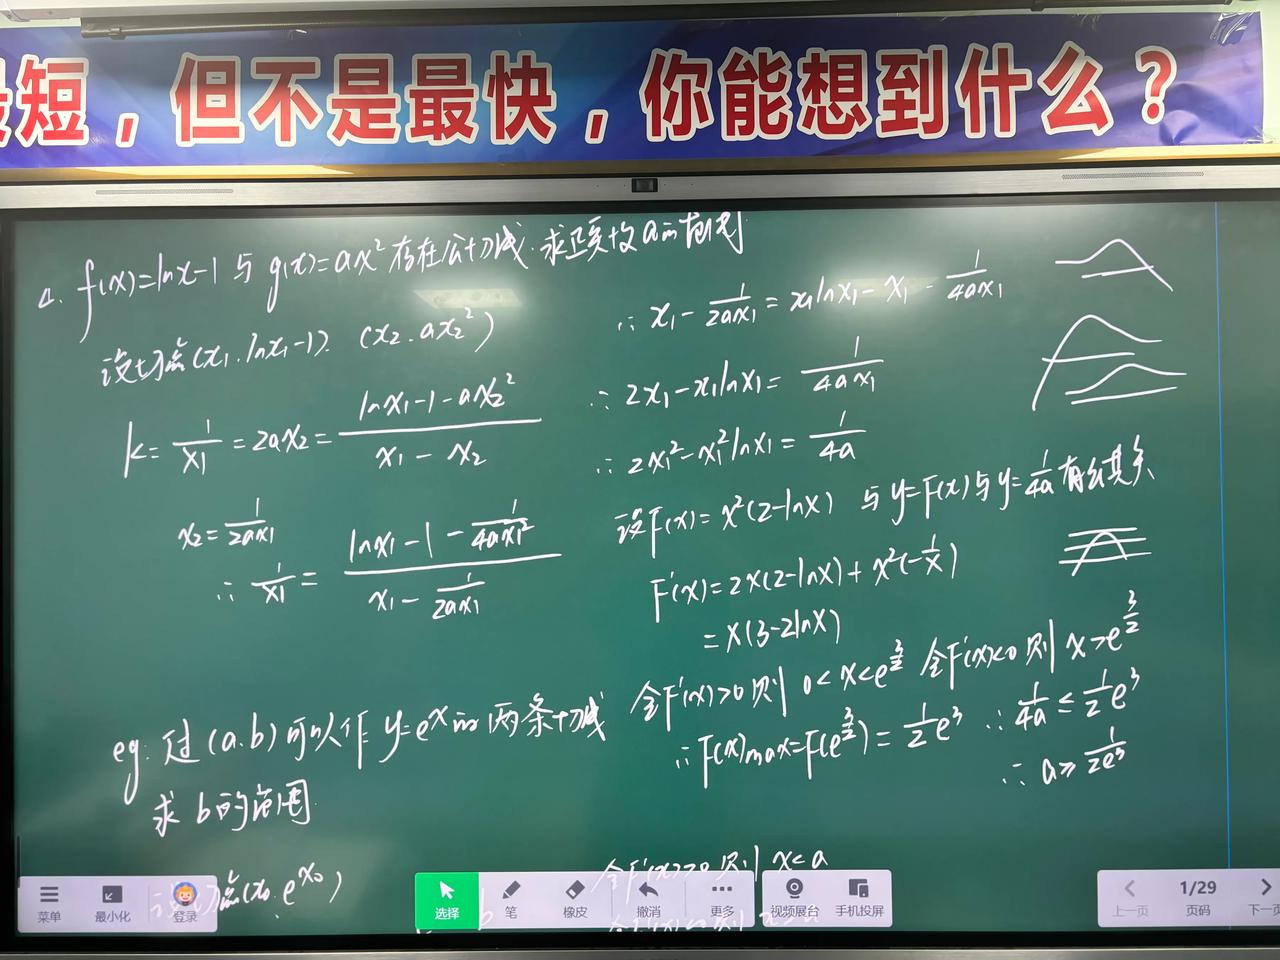 短，但不是最快，你能想到什么？
4. f(x)=lnx-1 与 g(x)=ax² 存在公切线.求正实数a的范围
设切点(x₁,lnx₁-1). (x₂,ax₂²)
k=1/x₁=2ax₂=(lnx₁-1-ax₂²)/(x₁-x₂)
x₂=1/(2ax₁)
∴ 1/x₁=(lnx₁-1-1/(4ax₁²))/(x₁-1/(2ax₁))
∴ x₁-1/(2ax₁)=x₁lnx₁-x₁-1/(4ax₁)
∴ 2x₁-x₁lnx₁=1/(4ax₁)
∴ 2x₁²-x₁²lnx₁=1/(4a)
设F(x)=x²(2-lnx) 与y=F(x)与y=1/(4a)有公共点
F'(x)=2x(2-lnx)+x²(-1/x)
=x(3-2lnx)
令F'(x)>0则 0<x<e^(3/2) 令F'(x)<0则 x>e^(3/2)
∴F(x)max=F(e^(3/2))=1/2e³ ∴ 1/(4a)≤1/2e³
∴ a≥1/(2e³)
eg. 过(a.b)可以作y=eˣ的两条切线
求b的范围
设切点(x₀.e^(x₀))
令F'(x)>0则 x<a
菜单 最小化 登录
选择 笔 橡皮 撤消 更多 视频展台 手机投屏
上一页 1/29 页码 下一页